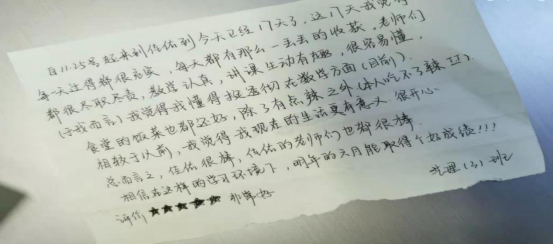 自11.25号起来到佶佑到今天已经17天了,这17天我觉得
每天过得都很充实,每天都有那么一丢丢的收获,老师们
都很尽职尽责,教学认真,讲课生动有趣,很容易懂,
(于我而言)我觉得我懂得挺透彻在教学方面(目前)。
食堂的饭菜也都还好,除了有点辣之外(本人吃不了辣
相较于以前,我觉得我现在的生活更有意义 很开心。
总而言之,佶佑很棒,佶佑的老师们也都很棒
相信在这样的学习环境下,明年的六月能取得个好成绩!!!
评价★★★★★ 非常好
文理(3)班